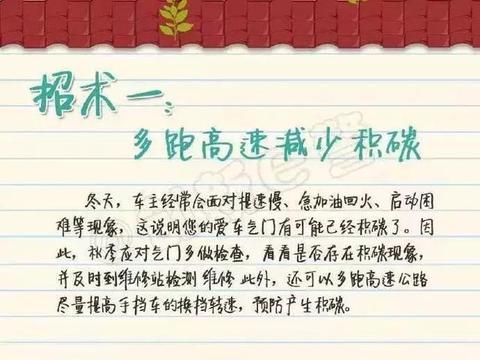 招术一:
多跑高速减少积碳
冬天,车主经常会面对提速慢、急加油回火、启动困
难等现象,这说明您的爱车气门有可能已经积碳了。因
此,秋季应对气门多做检查,看看是否存在积碳现象,
并及时到维修站检测维修 此外,还可以多跑高速公路
尽量提高手挡车的换档转速,预防产生积碳。